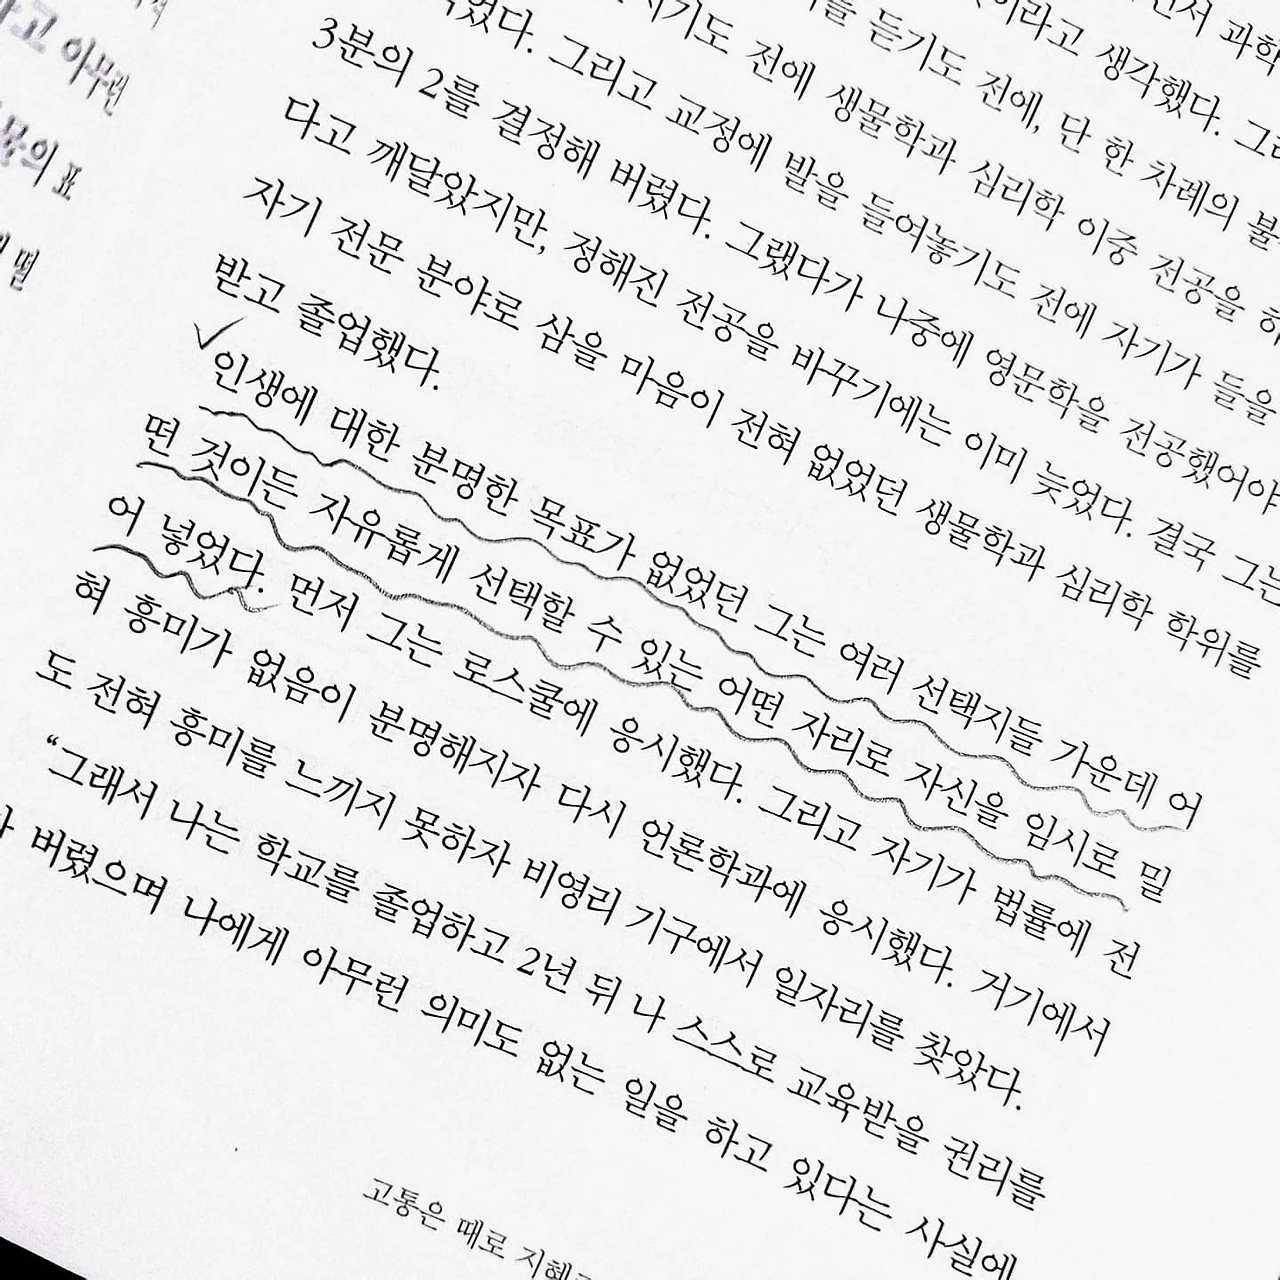 아무런
표
떨
과학
생각했다.
듣기도 전에, 단 한 차례의
전에 생물학과 심리학 이중 전공을
그리고 교정에 발을 들여놓기도 전에 자기가 들을
3분의 2를 결정해 버렸다. 그랬다가 나중에 영문학을 전공했어야
다고 깨달았지만, 정해진 전공을 바꾸기에는 이미 늦었다. 결국 그는
자기 전문 분야로 삼을 마음이 전혀 없었던 생물학과 심리학 학위를
받고 졸업했다.
인생에 대한 분명한 목표가 없었던 그는 여러 선택지들 가운데 어
떤 것이든 자유롭게 선택할 수 있는 어떤 자리로 자신을 임시로 밀
어 넣었다. 먼저 그는 로스쿨에 응시했다. 그리고 자기가 법률에 전
혀 흥미가 없음이 분명해지자 다시 언론학과에 응시했다. 거기에서
도 전혀 흥미를 느끼지 못하자 비영리 기구에서 일자리를 찾았다.
“그래서 나는 학교를 졸업하고 2년 뒤 나 스스로 교육반을 권리를
버렸으며 나에게 아무런 의미도 없는 일을 하고 있다는 사실에
고통은 때로